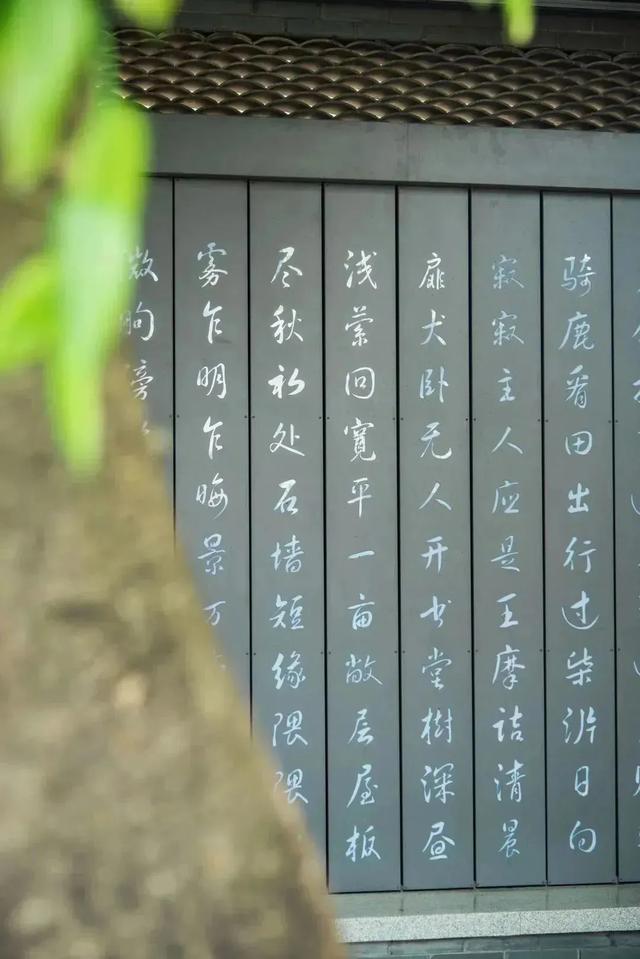 雾乍明乍晦景万
尽秋初处石墙短缘隈隈
浅萦回宽平一亩敞层屋板
扉犬卧无人开书堂树深昼
寂寂主人应是王摩诘清晨
骑鹿看田出行过柴沜日向